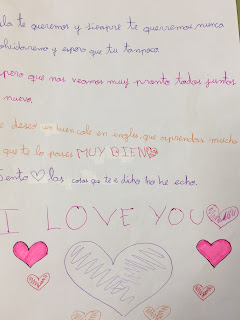 te queremos y siempre te querremos nunca
olvidaremo y espero que tu tampoco.
espero que nos veamos muy pronto todos juntos
nuevo.
deseo un buen cole en ingles, que aprendas mucho
que te lo pases MUY BIEN
Siento las cosas que te e dicho y he echo.
I LOVE YOU